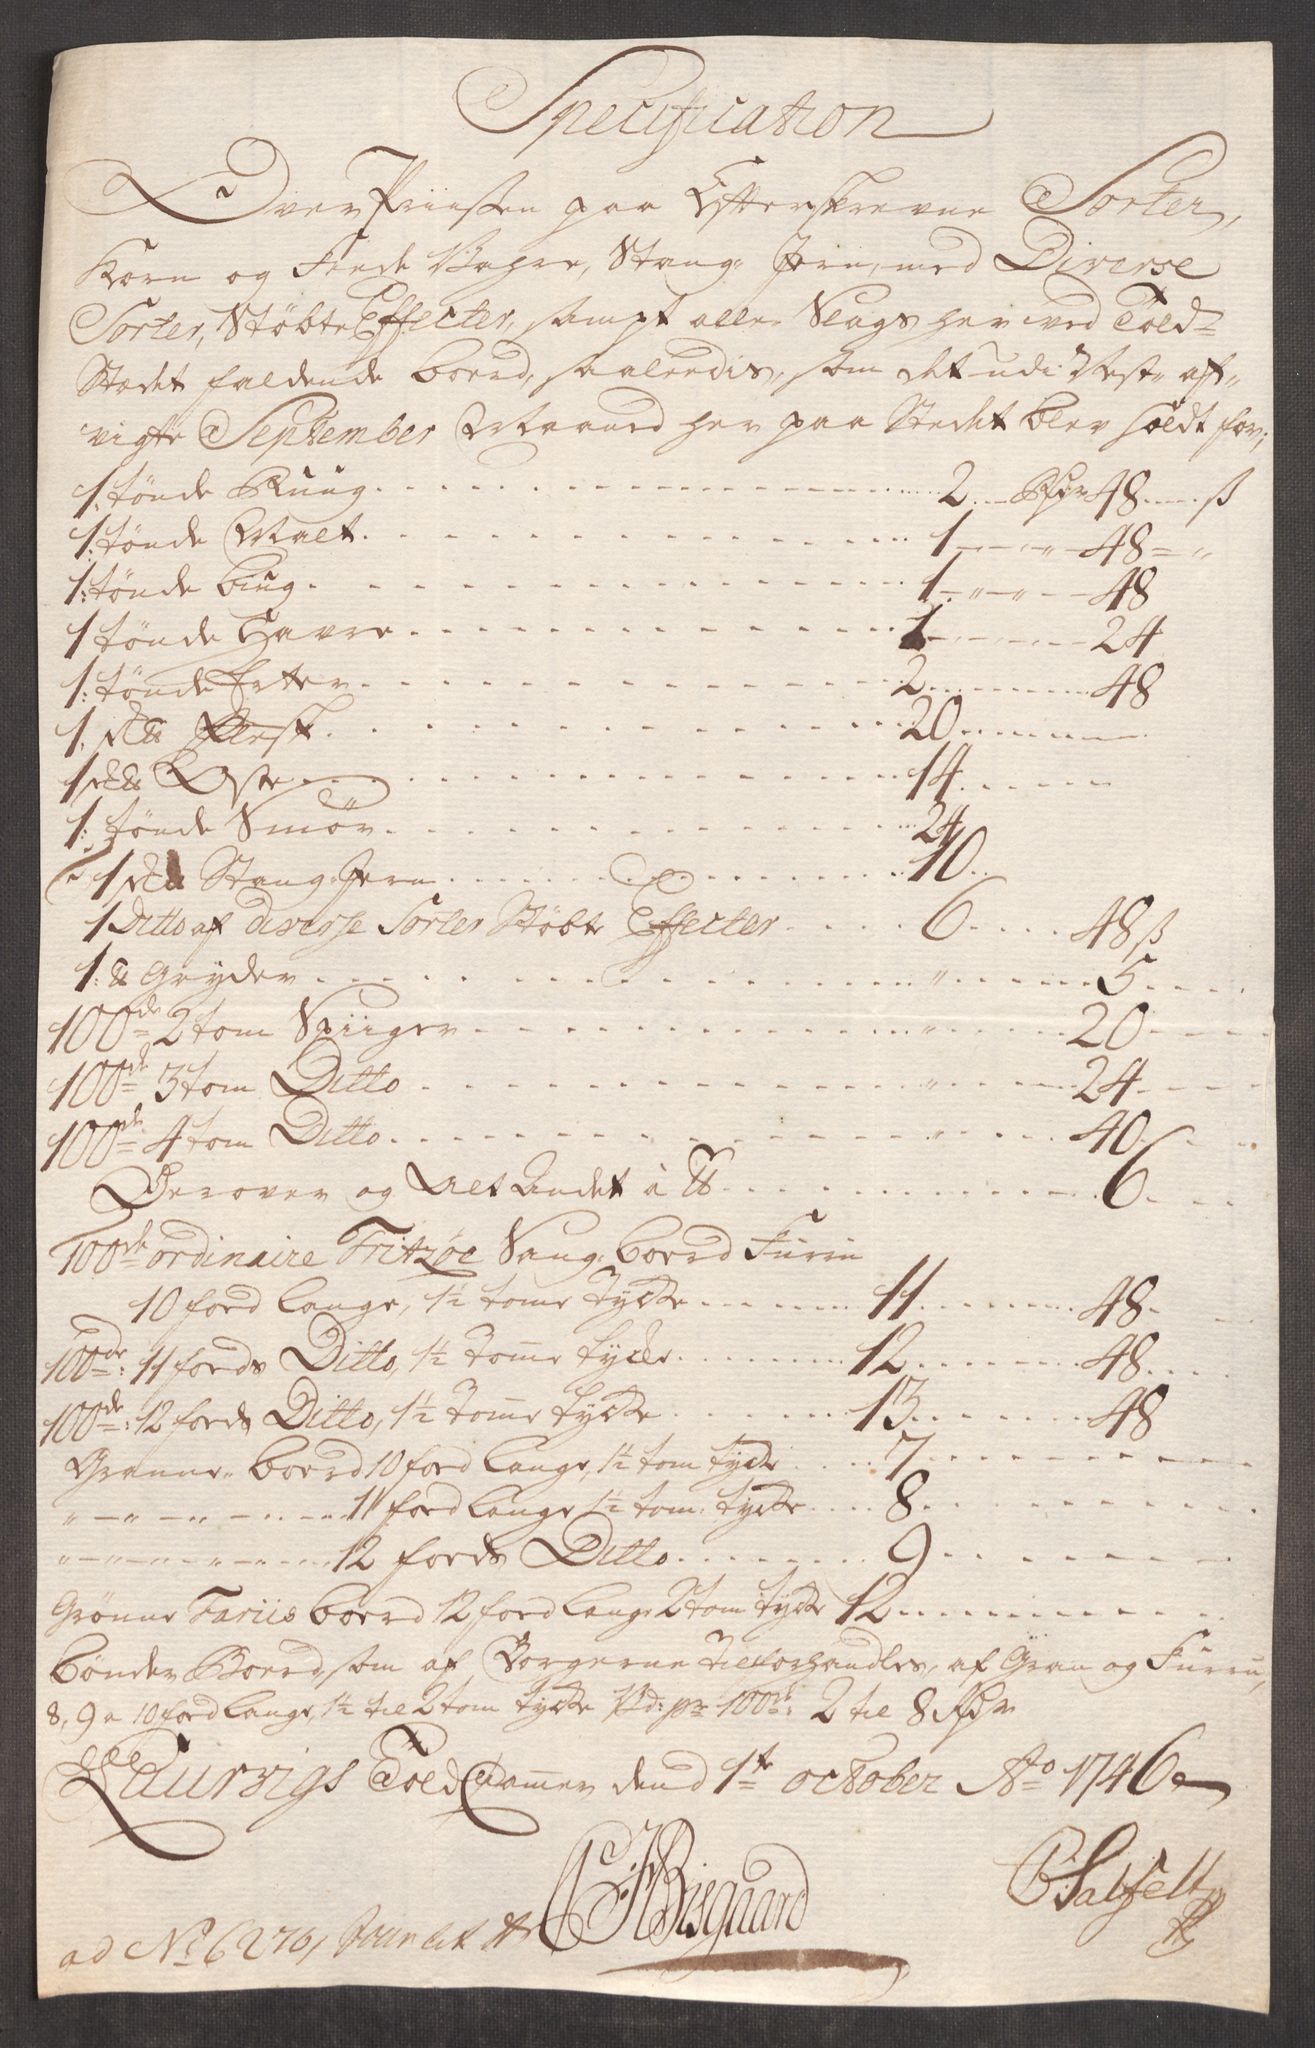 Specification
Over Priissen paa Efterskrevne Sorter,
Korn og Fede Vahre, Stang Jern, med Diverse
Sorter, Støbte Effecter, sampt alle Slags her ved Told-
Stædet faldende boerd, saaledis, som det udi Nest af-
vigte September Maaned her paa Stedet blev holdt for;
1 tønde Ruug 2 Rdr 48 ß
1: tønde Malt 1 " 48 "
1: tønde biug 1 " 48
1 tønde Havre 1 24
1: tønde Erter 2 48
1. Sk℔ Flesk 20
1 Sk℔ Oste 14
1: tønde Smør 24
1 Sk℔ Stang Jern 10
1 Ditto af diverse Sorter Støbte Effecter 6 48 ß
1: ℔ Gryder " 5
100de 2 tom Spiiger " 20
100de 3 tom Ditto " 24
100de 4 tom Ditto " 40
Derover og alt Andet à ℔ 6
100de ordinaire Fritzøe Saug boerd Furru
10 foed lange, 1½ tome tycke 11 48
100de: 11 foeds Ditto, 1½ Tomme tycke 12 48
100de: 12 foeds Ditto, 1½ Tomme tycke 13 48
Granne boerd 10 foed lange, 1½ tom tycke 7
" " 11 foed lange 1½ tom: tycke 8
" " 12 foeds Ditto 9
Grønne boerd 12 foed lange 2 tom tycke 12
bønder Boerd, som af Borgerne Tilforhandles, af Gran og Furru,
8, 9 a 10 foed lange, 1½ til 2 tom tycke pr 100de: 2 til 8 Rdr
Laurvigs Told Cammer dend 1te october Ao 1746
C F Bisgaard
C: Salfelt
ad No 6270